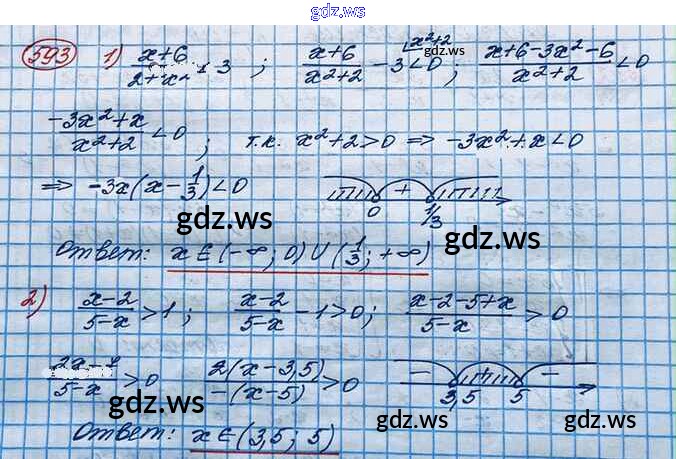 gdz.ws
593 1) x+6/2+x² < 3 ; x+6/x²+2 - 3 < 0 ; x+6-3x²-6/x²+2 < 0
-3x²+x/x²+2 < 0 ; т.к. x²+2>0 => -3x²+x<0
=> -3x(x-1/3)<0 + 0 1/3
gdz.ws
gdz.ws
Ответ: x∈(-∞; 0)∪(1/3; +∞)
2) x-2/5-x >1 ; x-2/5-x -1>0 ; x-2-5+x/5-x > 0
gdz.ws
gdz.ws
5-x >0 2(x-3,5)/-(x-5) >0 - + - 3,5 5
gdz.ws
gdz.ws
gdz.ws
Ответ: x∈(3,5; 5)
gdz.ws